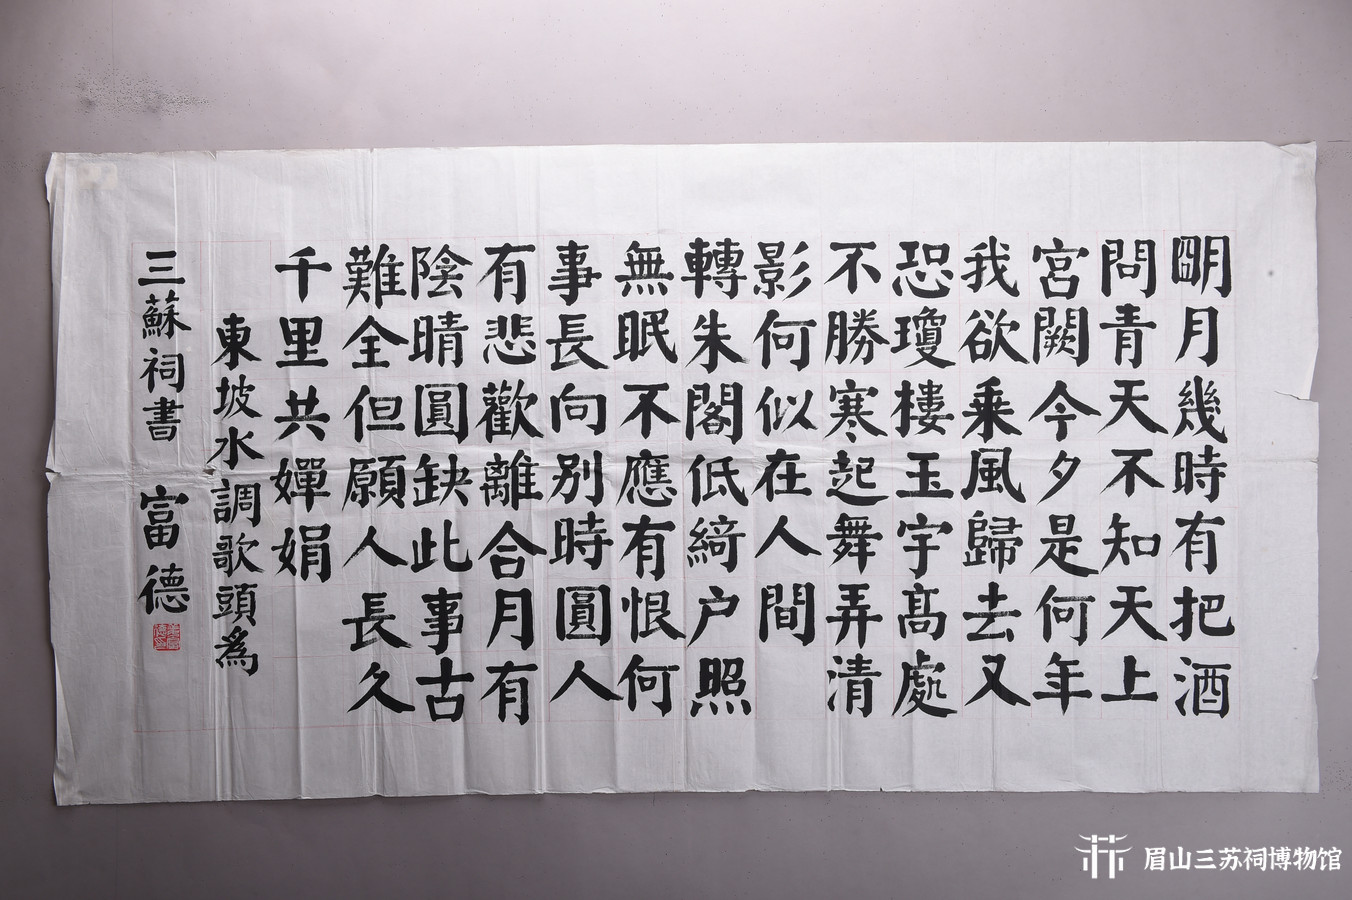 明月幾時有把酒
問青天不知天上
宮闕今夕是何年
我欲乘風歸去又
恐瓊樓玉宇高處
不勝寒起舞弄清
影何似在人間
轉朱閣低綺户照
無眠不應有恨何
事長向别時圓人
有悲歡離合月有
陰晴圓缺此事古
難全但願人長久
千里共嬋娟
東坡水調歌頭為
三蘇祠書 富德
眉山三苏祠博物馆